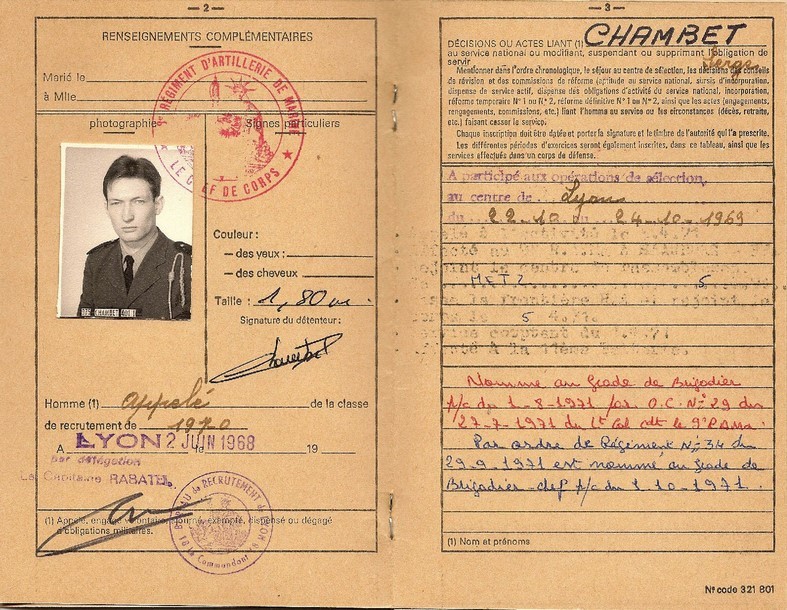 — 2 —
RENSEIGNEMENTS COMPLÉMENTAIRES
Marié le
à Mlle
photographie
Signes particuliers
RÉGIMENT D'ARTILLERIE DE MARINE
LE CHEF DE CORPS
CHAMBET
Couleur :
— des yeux :
— des cheveux
Taille : 1,80 m.
Signature du détenteur :
Homme (1) appelé de la classe
de recrutement de 1970
A LYON le 2 JUIN 1968 19
par délégation
Le Capitaine RABATEL.
BUREAU de RECRUTEMENT de LYON
Le Commandant
(1) Appelé, engagé volontaire, ajourné, exempté, dispensé ou dégagé
d'obligations militaires.
— 3 —
DÉCISIONS OU ACTES LIANT (1) CHAMBET
au service national ou modifiant, suspendant ou supprimant l'obligation de
servir Serge
Mentionner dans l'ordre chronologique, le séjour au centre de sélection, les décisions des conseils
de révision et des commissions de réforme (aptitude au service national, sursis d'incorporation,
dispense de service actif, dispense des obligations d'activité du service national, incorporation,
réforme temporaire N° 1 ou N° 2, réforme définitive N° 1 ou N° 2, ainsi que les actes (engagements,
rengagements, commissions, etc.) liant l'homme au service ou les circonstances (décès, retraite,
etc.) faisant cesser le service).
Chaque inscription doit être datée et porter la signature et le timbre de l'autorité qui l'a prescrite.
Les différentes périodes d'exercices seront également inscrites, dans ce tableau, ainsi que les
services effectués dans un corps de défense.
A participé aux opérations de sélection,
au centre de Lyon
du 22.10 au 24.10.1969
METZ 5
la frontière
5 4.71
compter du
à la 11ème
Nommé au grade de Brigadier
p/c du 1-8-1971 par O.C. N° 29 du
27-7-1971 du Lt Col
Par ordre de Régiment N° 34 du
29-9-1971 est nommé au grade de
Brigadier-chef p/c du 1.10.1971.
(1) Nom et prénoms
N° code 321 801